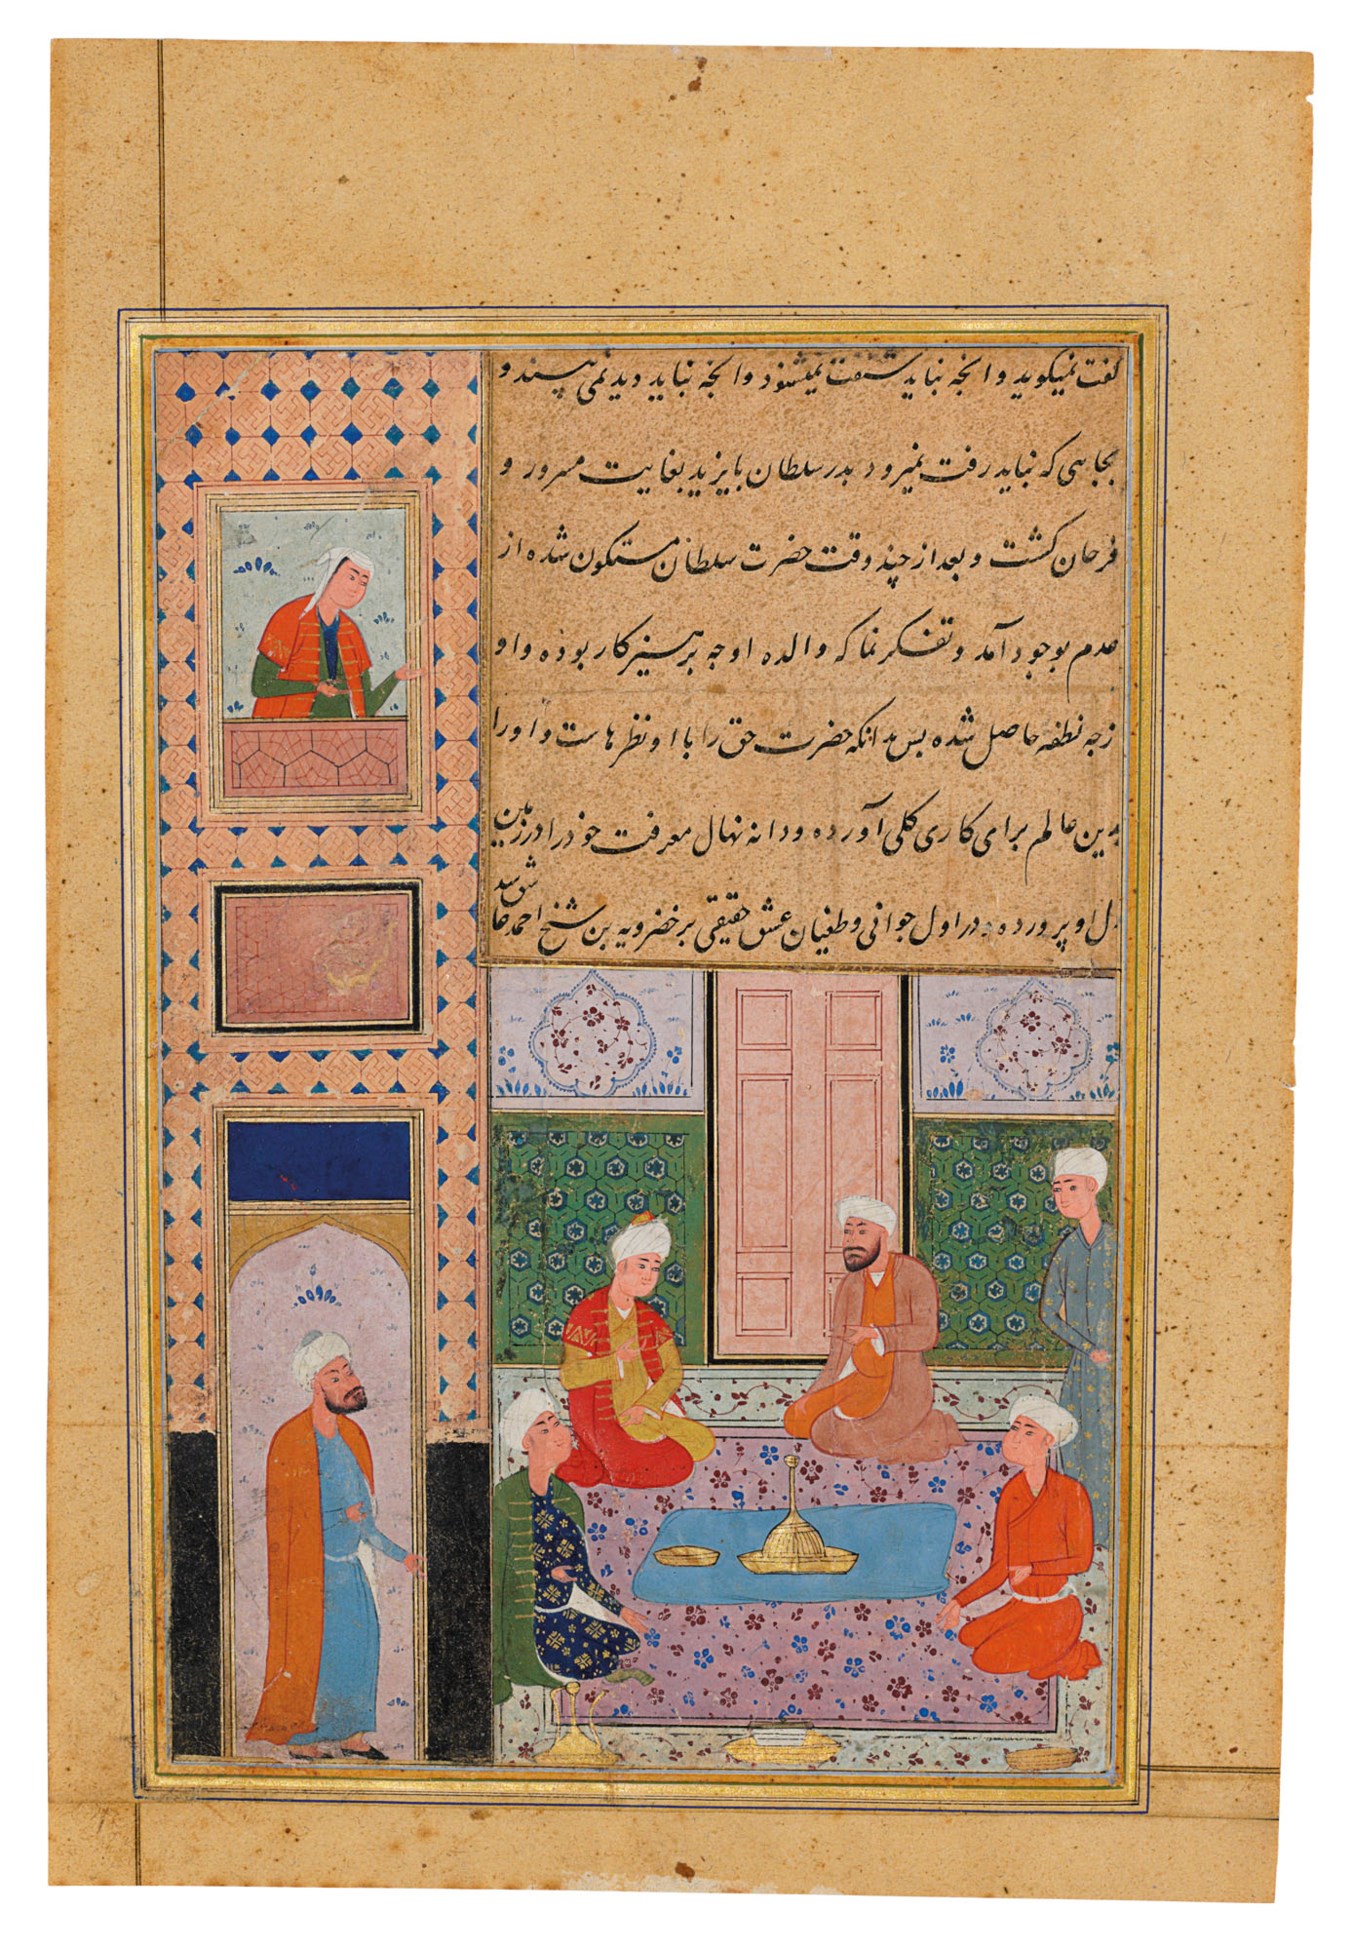 گفت نمیگوید و انجه نباید شنفت نمیشنود و انجه نباید دید نمی بیند و
بجایی که نباید رفت نمیرود پدر سلطان بایزید بغایت مسرور و
فرحان گشت و بعد از چند وقت حضرت سلطان متکون شده از
عدم بوجود آمد و تفکر نما که والده او چه پرهیزکار بوده و او
ازچه نطفه حاصل شده پس بدانکه حضرت حق را با او نظرهاست و او را
بدین عالم برای کاری کلی آورده و دانه نهال معرفت خود را در زمین
دل او پرورده و در اول جوانی و طغیان عشق حقیقی بر خضرویه بن شیخ احمد عاشق شد